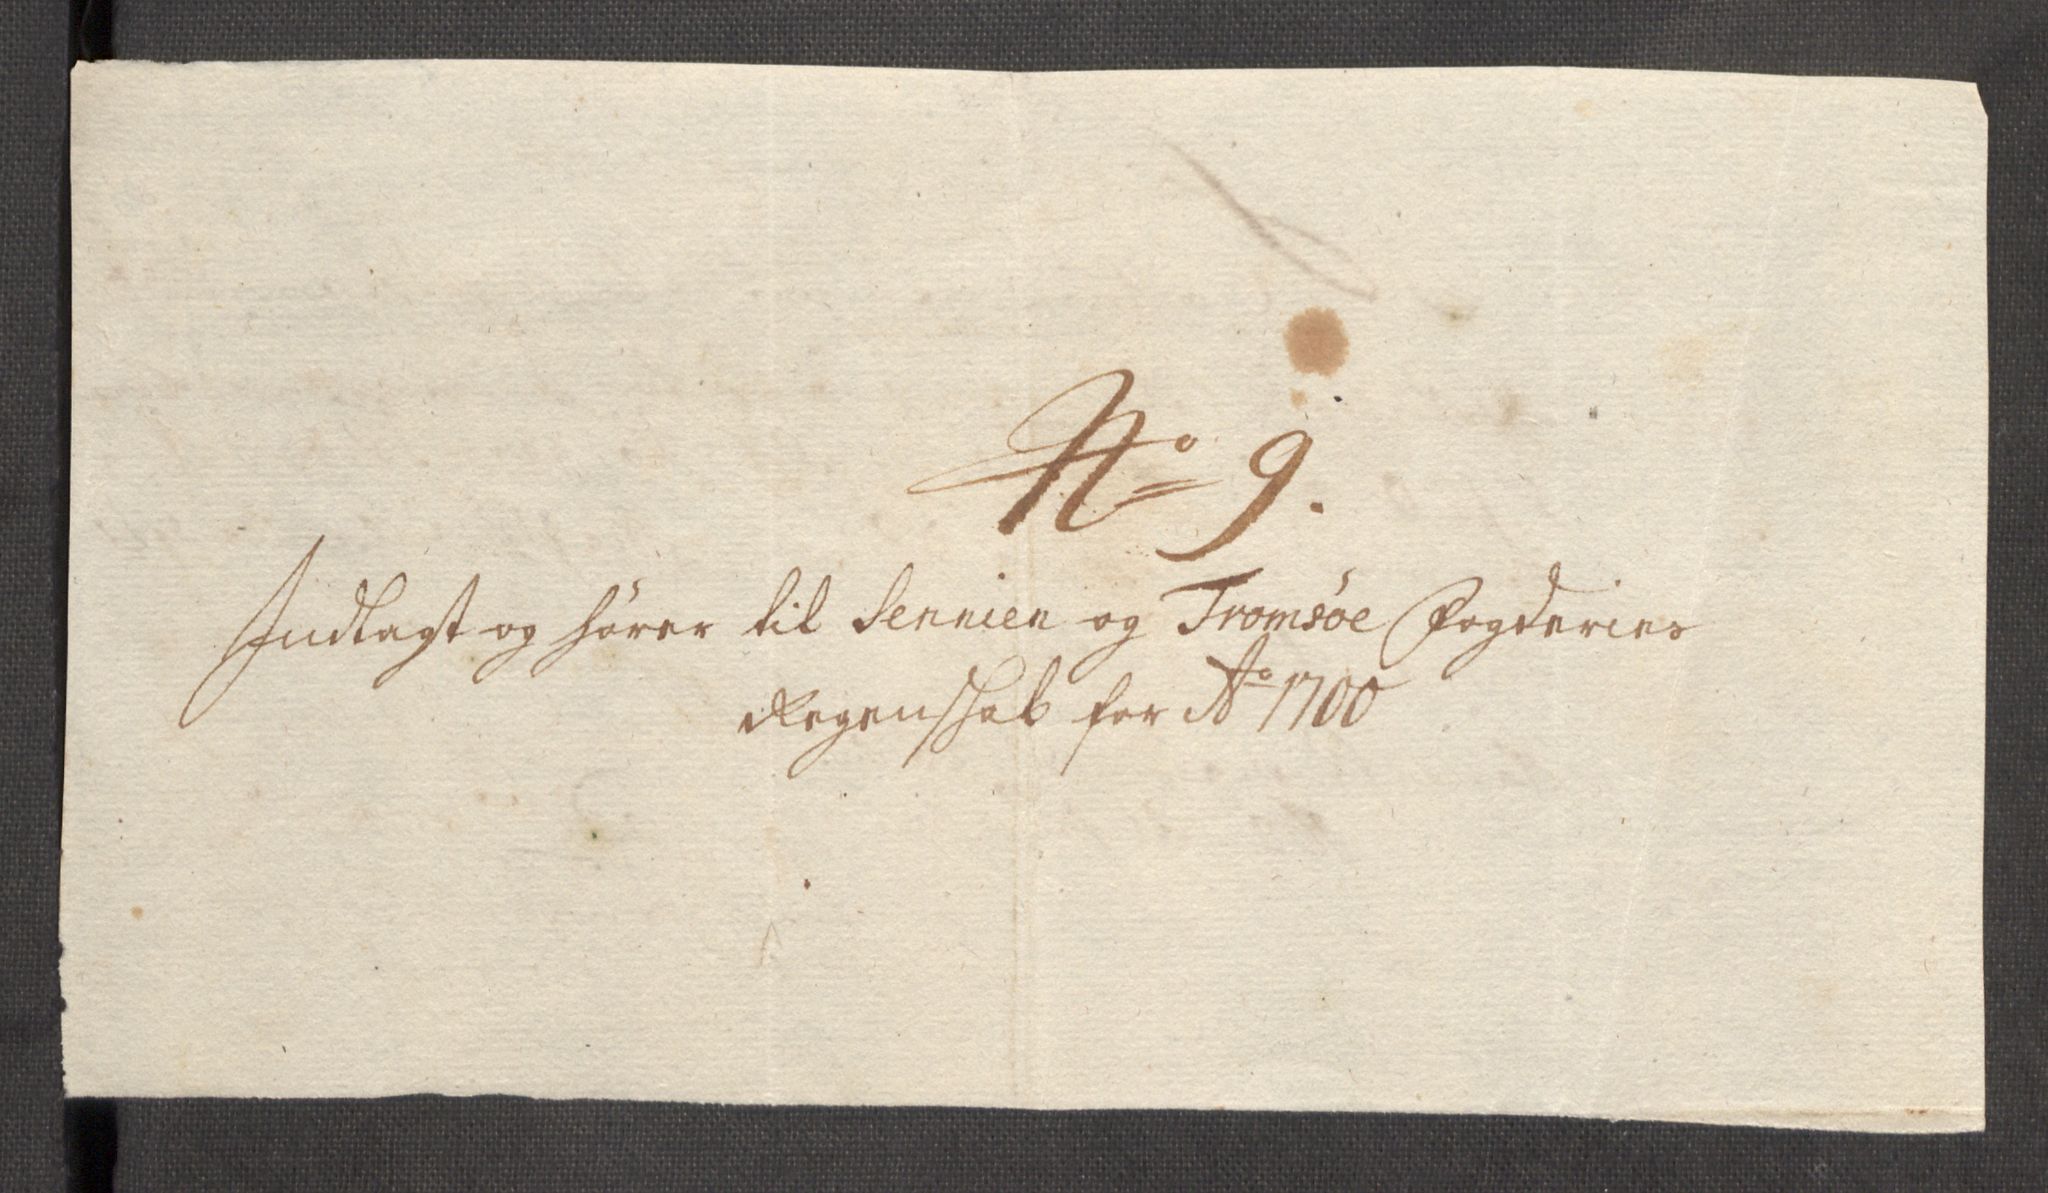 No 9.
Indlagt og hörer til Sennien og Tromsöe Fogderies
Regenskab for Ao 1700